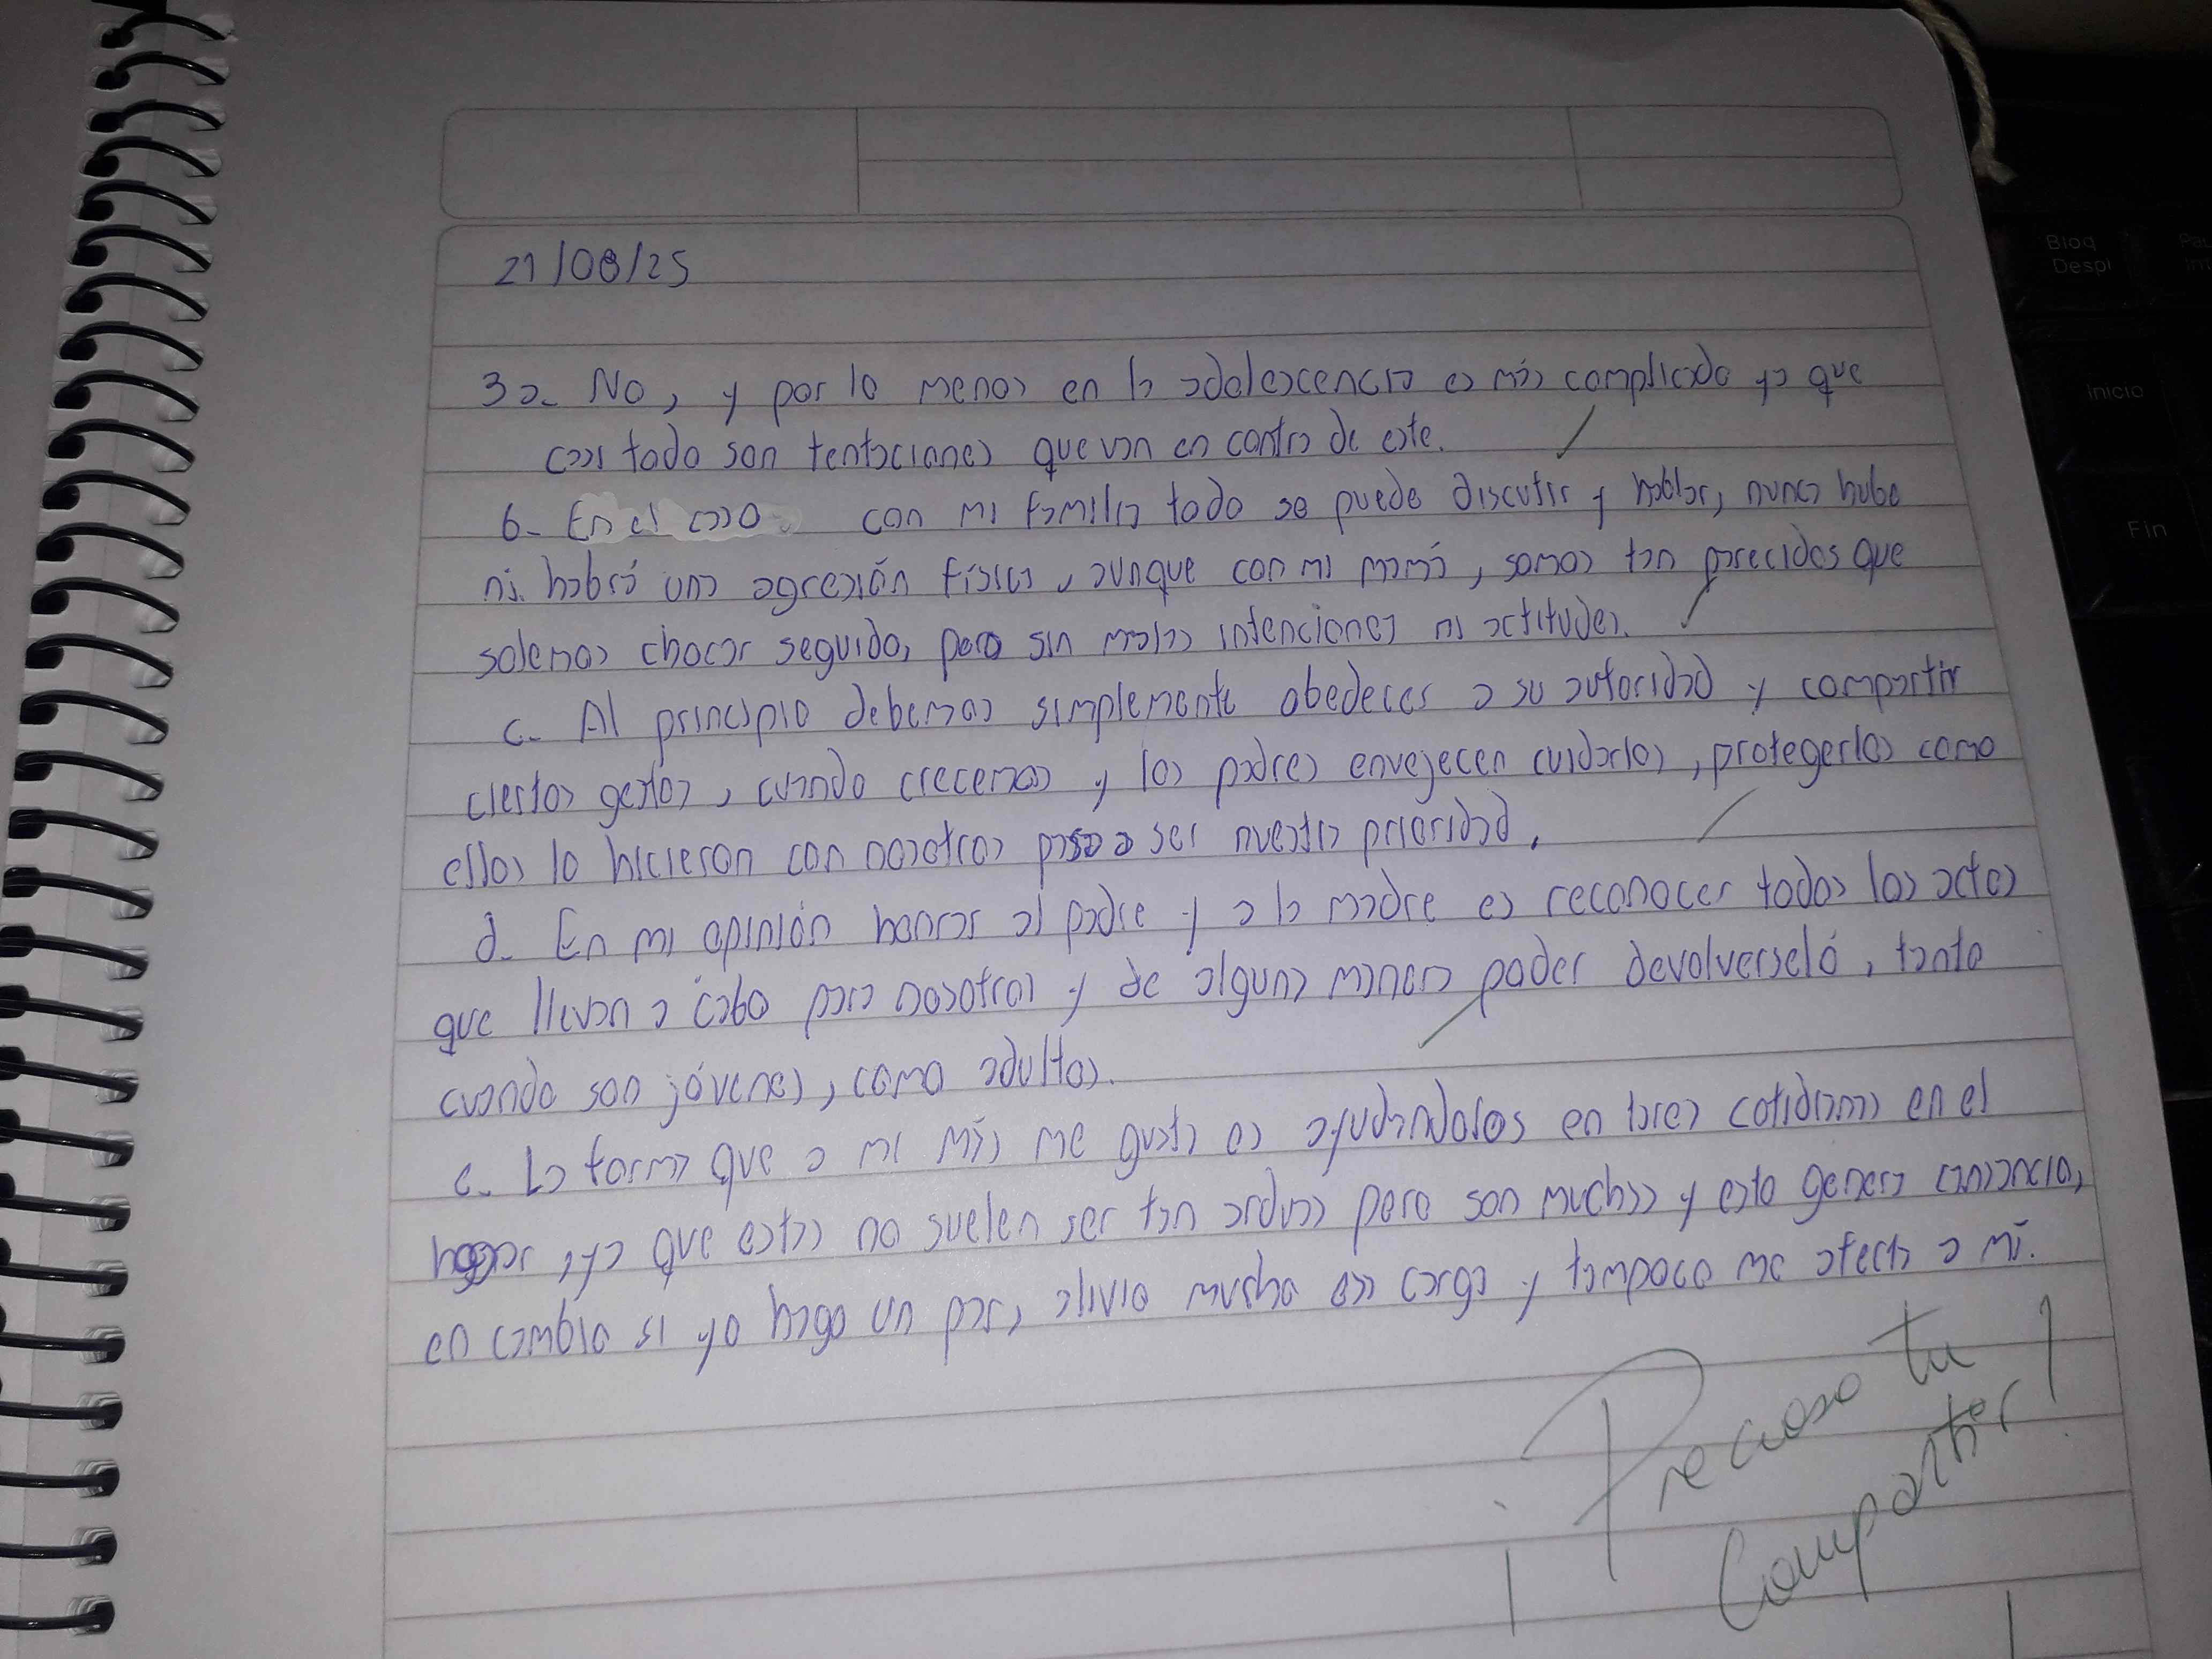 21/08/25
3a- No, y por lo menos en la adolescencia es más complicado ya que
casi todo son tentaciones que van en contra de este.
b- En el caso con mi familia todo se puede discutir y hablar, nunca hubo
ni habrá una agresión física, aunque con mi mamá, somos tan parecidos que
solemos chocar seguido, pero sin malas intenciones ni actitudes.
c- Al principio debemos simplemente obedecer a su autoridad y compartir
ciertos gestos, cuando crecemos y los padres envejecen cuidarlos, protegerlos como
ellos lo hicieron con nosotros pasa a ser nuestra prioridad.
d- En mi opinión honrar al padre y a la madre es reconocer todos los actos
que llevan a cabo para nosotros y de alguna manera poder devolverseló, tanto
cuando son jóvenes, como adultos.
e- La forma que a mi más me gusta es ayudandolos en tares cotidianas en el
hogar, ya que estas no suelen ser tan arduas pero son muchas y esto genera cansancio,
en cambio si yo hago un par, alivio mucho esa carga y tampoco me afecta a mí.
¡Precioso tu
Compartir!
Bloq
Despl
Inicio
Fin